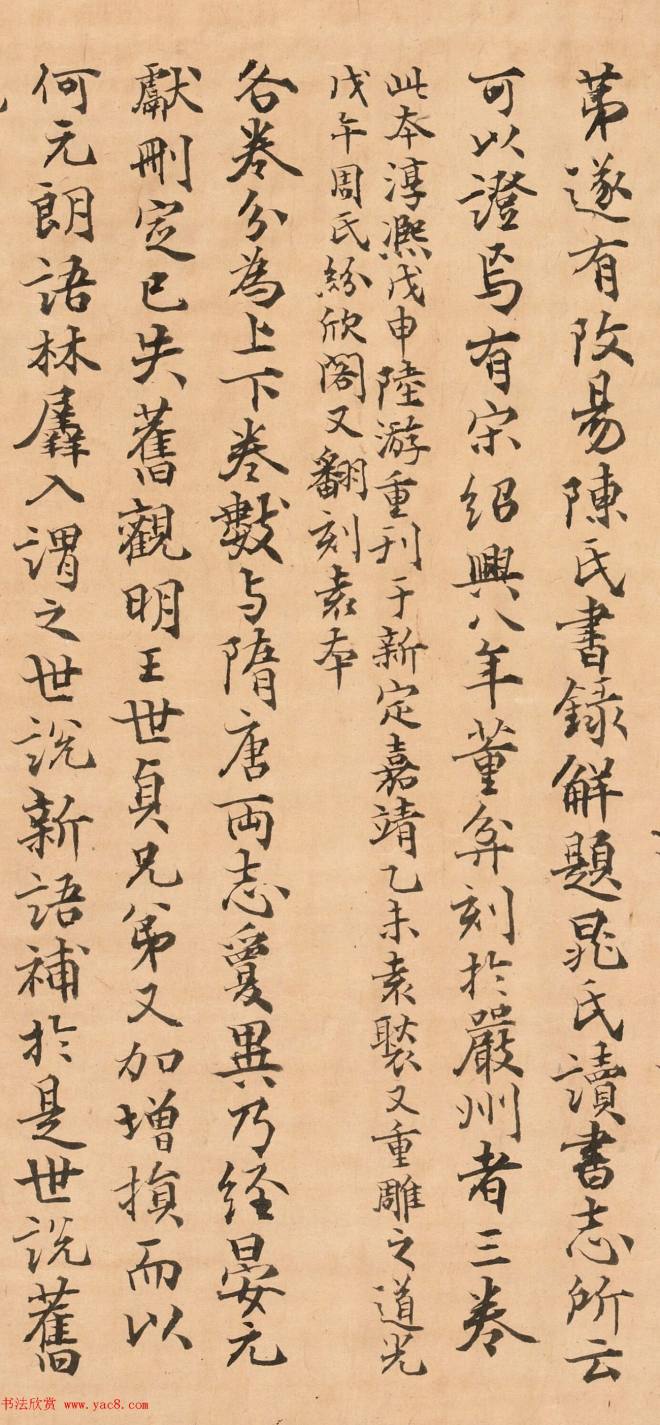 第遂有改易陳氏書錄解題晁氏讀書志所云
可以證焉有宋紹興八年董弅刻於嚴州者三卷
此本淳熙戊申陸游重刊于新定嘉靖乙未袁褧又重雕之道光
戊午周氏紛欣閣又翻刻袁本
各卷分為上下卷數与隋唐兩志夐異乃經晏元
獻刪定已失舊觀明王世貞兄弟又加增損而以
何元朗語林羼入謂之世說新語補於是世說舊
书法欣赏 www.yac8.com